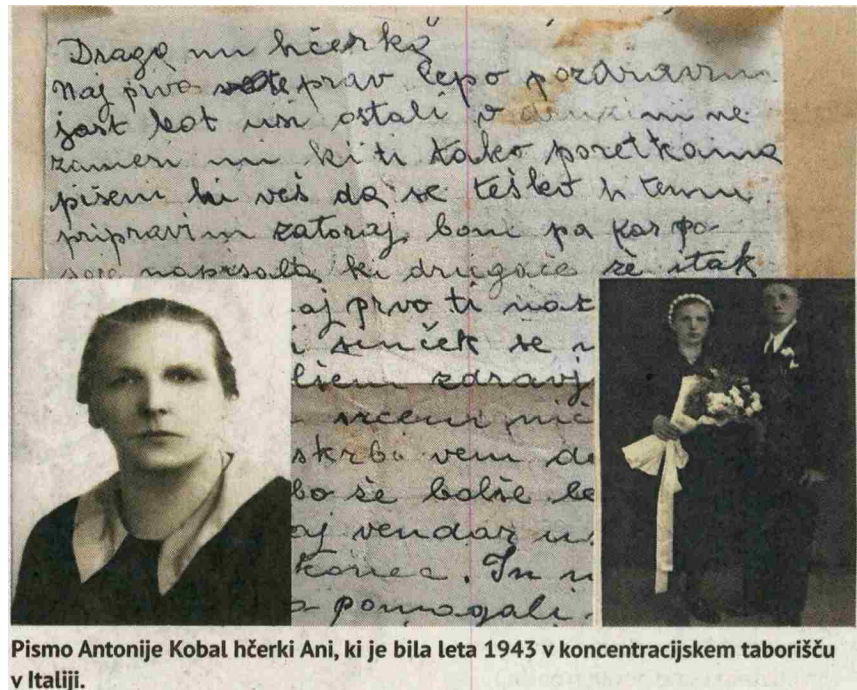 Draga mi hčerka
Naj prvo te prav lepo pozdravim
jast kot usi ostali v družini ne
zameri mi ki ti tako poretkama
pišem ki veš da se teško h temu
pripravim zatoraj bom pa kar po
ki drugače že itak
aj prvo ti
sinček se
zdravj
srčem nič
skrbi vem de
bo še bolše
aj vendar
konec. In
pomogali
Pismo Antonije Kobal hčerki Ani, ki je bila leta 1943 v koncentracijskem taborišču
v Italiji.